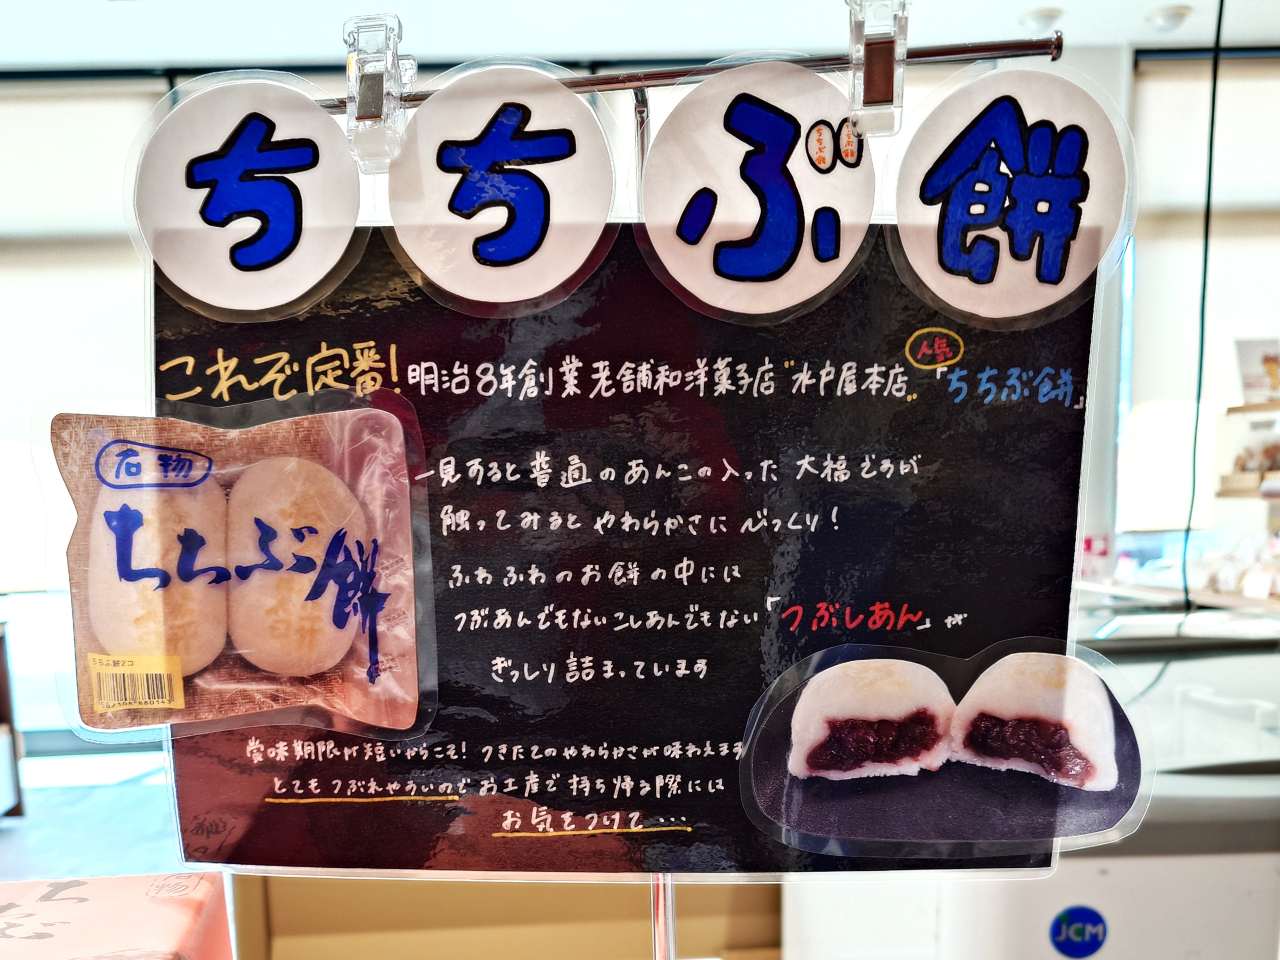 ちちぶ餅
これぞ定番!明治8年創業老舗和洋菓子店"水戸屋本店"人気「ちちぶ餅」
名物
ちちぶ餅
ちちぶ餅2コ
一見すると普通のあんこの入った大福ですが
触ってみるとやわらかさにびっくり!
ふわふわのお餅の中には
つぶあんでもないこしあんでもない「つぶしあん」が
ぎっしり詰まっています
賞味期限が短いからこそ!つきたてのやわらかさが味わえます
とてもつぶれやすいのでお土産で持ち帰る際には
お気をつけて…
JCM